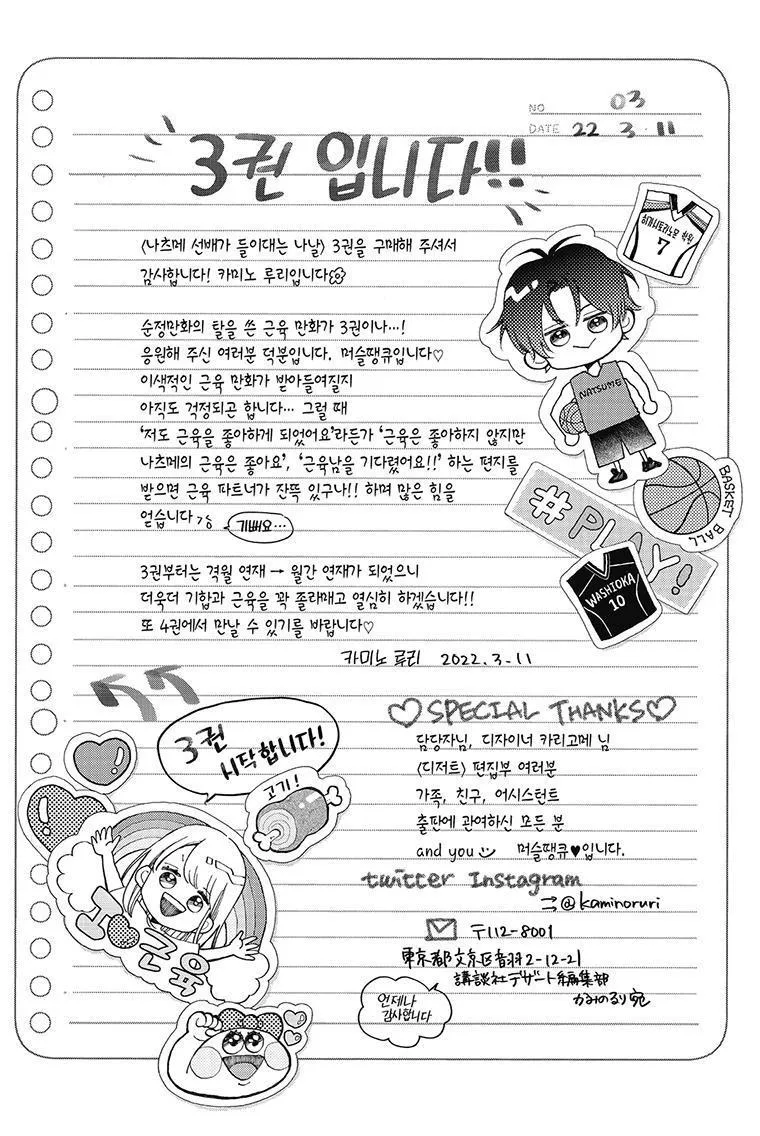 NO 03
DATE 22 3.11
3권 입니다!!
<나츠메 선배가 들이대는 나날> 3권을 구매해 주셔서
감사합니다! 카미노 루리입니다
순정만화의 탈을 쓴 근육 만화가 3권이나…!
응원해 주신 여러분 덕분입니다. 머슬땡큐입니다♡
이색적인 근육 만화가 받아들여질지
아직도 걱정되곤 합니다… 그럴 때
'저도 근육을 좋아하게 되었어요'라든가 '근육은 좋아하지 않지만
나츠메의 근육은 좋아요', '근육남을 기다렸어요!!' 하는 편지를
받으면 근육 파트너가 잔뜩 있구나!! 하며 많은 힘을
얻습니다
기뻐요…
3권부터는 격월 연재 → 월간 연재가 되었으니
더욱더 기합과 근육을 꽉 졸라매고 열심히 하겠습니다!!
또 4권에서 만날 수 있기를 바랍니다♡
카미노 루리 2022.3.11
히가시토라노몬 학원
7
NATSUME
BASKET BALL
#PLAY!
WASHIOKA
10
3권
시작합니다!
고기!
I♥근육
♡SPECIAL THANKS♡
담당자님, 디자이너 카리고메 님
<디저트> 편집부 여러분
가족, 친구, 어시스턴트
출판에 관여하신 모든 분
and you 머슬땡큐♥입니다.
twitter Instagram
→@kaminoruri
〒112-8001
東京都文京区音羽2-12-21
講談社デザート編集部
かみのるり宛
언제나
감사합니다